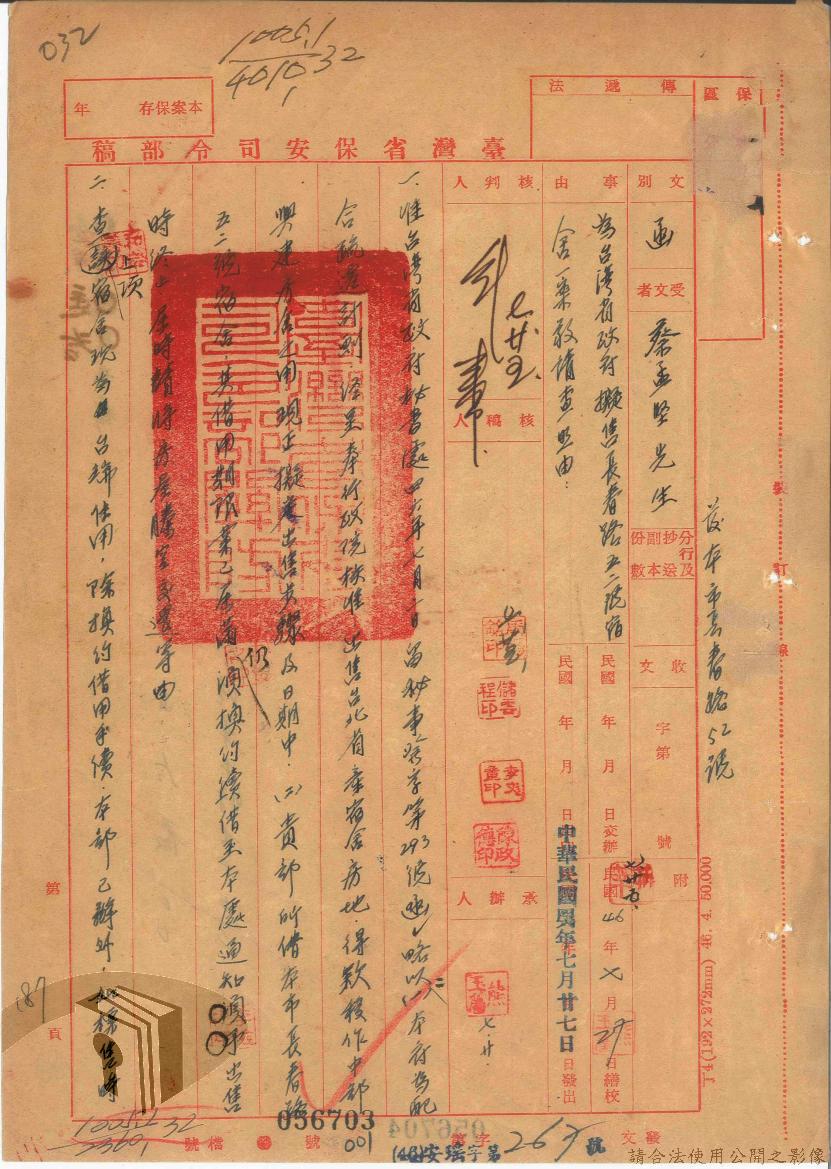 032
1005.1
4010 32
1
保區
傳遞法
本案保存 年
臺灣省保安司令部稿
文別 函
受文者 蔡孟堅先生
發本市長春路52號
分行及抄送副本份數
事由
為台灣省政府擬售長春路五二號宿
舍一案敬請查照由:
收文 字第 號
附
民國 年 月 日交辦
民國 年 月 日
民國46年七月29日繕校
中華民國 年七月廿七日發出
核判人
七廿五
核稿人
承辦人
七.廿.
一、准台灣省政府秘書處四六年七月一日
第293號函(略以)(一)本府為配
合疏遷計劃,經呈奉行政院核准出售台北省產宿舍房地,得款移作中部
興建房舍之用現正擬處出售步驟及日期中.(二)貴部所借本市長春路
五二號宿舍,其借用期限業已屆滿仍須換約續借至本處通知須予出售
時終止屆時請將房屋騰空交還等由
二、查上項宿舍現為 台端住用,除換約借用手續,本部已辦外,如標售時
裝訂線
T4(192×272mm) 46. 4. 50,000
第 187 頁
1005.1 32
2360.1
檔號
056703
056704
001
發文 (46)安瑤字第 267 號
請合法使用公開之影像